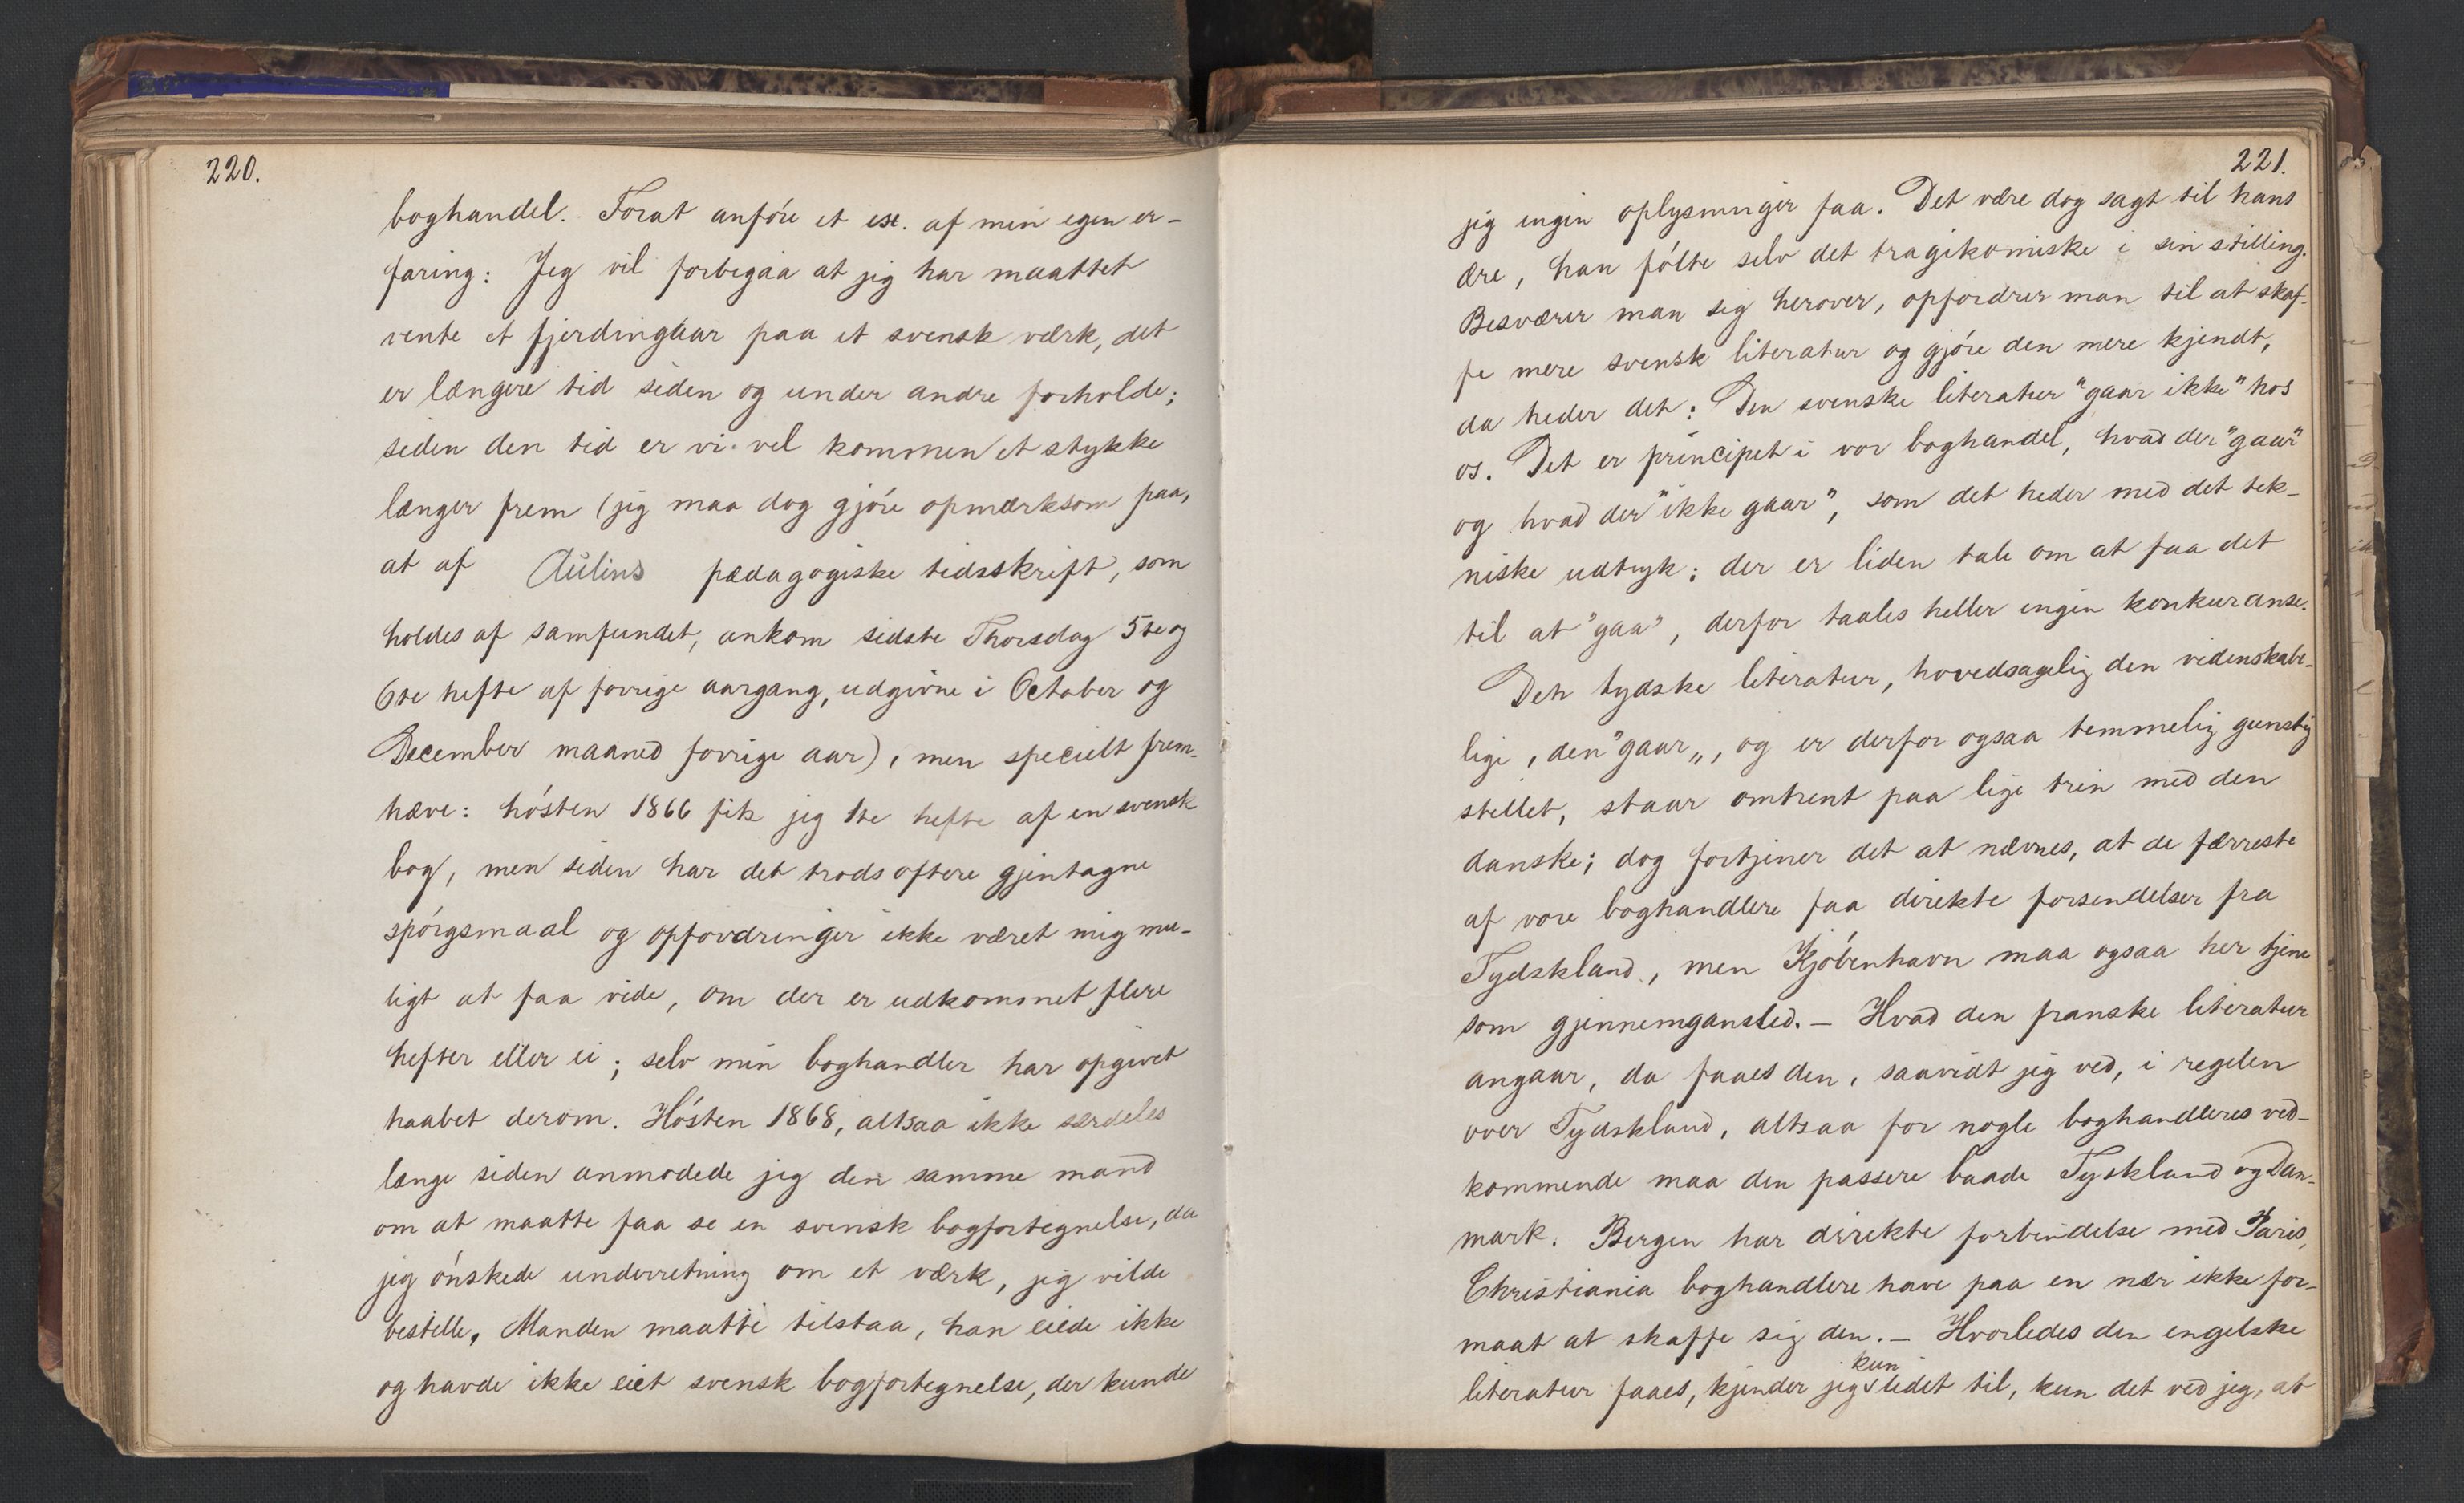 220.
boghandel. Forat anføre et ex. af min egen er-
faring: Jeg vil forbigaa at jeg har maattet
vente et fjerdingaar paa et svensk værk, det
er længere tid siden og under andre forholde;
siden den tid er vi vel kommen et stykke
længer frem (jeg maa dog gjøre opmærksom paa,
at af Aulins pædagogiske tidsskrift, som
holdes af samfundet, ankom sidste Thorsdag 5te og
6te hefte af forrige aargang, udgivne i October og
December maaned forrige aar), men specielt frem-
hæve: høsten 1866 fik jeg 1te hefte af en svensk
bog, men siden har det trods oftere gjentagne
spørgsmaal og opfordringer ikke været mig mu-
ligt at faa vide, om der er udkommet flere
hefter eller ei; selv min boghandler har opgivet
haabet derom. Høsten 1868, altsaa ikke særdeles
længe siden anmodede jeg den samme mand
om at maatte faa se en svensk bogfortegnelse, da
jeg ønskede underretning om et værk, jeg vilde
bestille. Manden maatte tilstaa, han eiede ikke
og havde ikke eiet svensk bogfortegnelse, der kunde
221.
jeg ingen oplysninger faa. Det være dog sagt til hans
ære, han følte selv det tragikomiske i sin stilling.
Besværer man sig herover, opfordrer man til at skaf-
fe mere svensk literatur og gjøre den mere kjendt,
da heder det: Den svenske literatur "gaar ikke" hos
os. Det er principet i vor boghandel, hvad der "gaar"
og hvad der "ikke gaar", som det heder med det tek-
niske udtryk; der er liden tale om at faa det
til at "gaa", derfor taales heller ingen konkuranse.
Den tydske literatur, hovedsagelig den videnskabe-
lige, den "gaar", og er derfor ogsaa temmelig gunstig
stillet, staar omtrent paa lige trin med den
danske; dog fortjener det at nævnes, at de færreste
af vore boghandlere faa direkte forsendelser fra
Tydskland, men Kjøbenhavn maa ogsaa her tjene
som gjennemgansted. – Hvad den franske literatur
angaar, da faaes den, saavidt jeg ved, i regelen
over Tydskland, altsaa for nogle boghandleres ved-
kommende maa den passere baade Tyskland og Dan-
mark. Bergen har direkte forbindelse med Paris,
Christiania boghandlere have paa en nær ikke for-
maat at skaffe sig den. – Hvorledes den engelske
literatur faaes, kjender jeg kun lidet til, kun det ved jeg, at